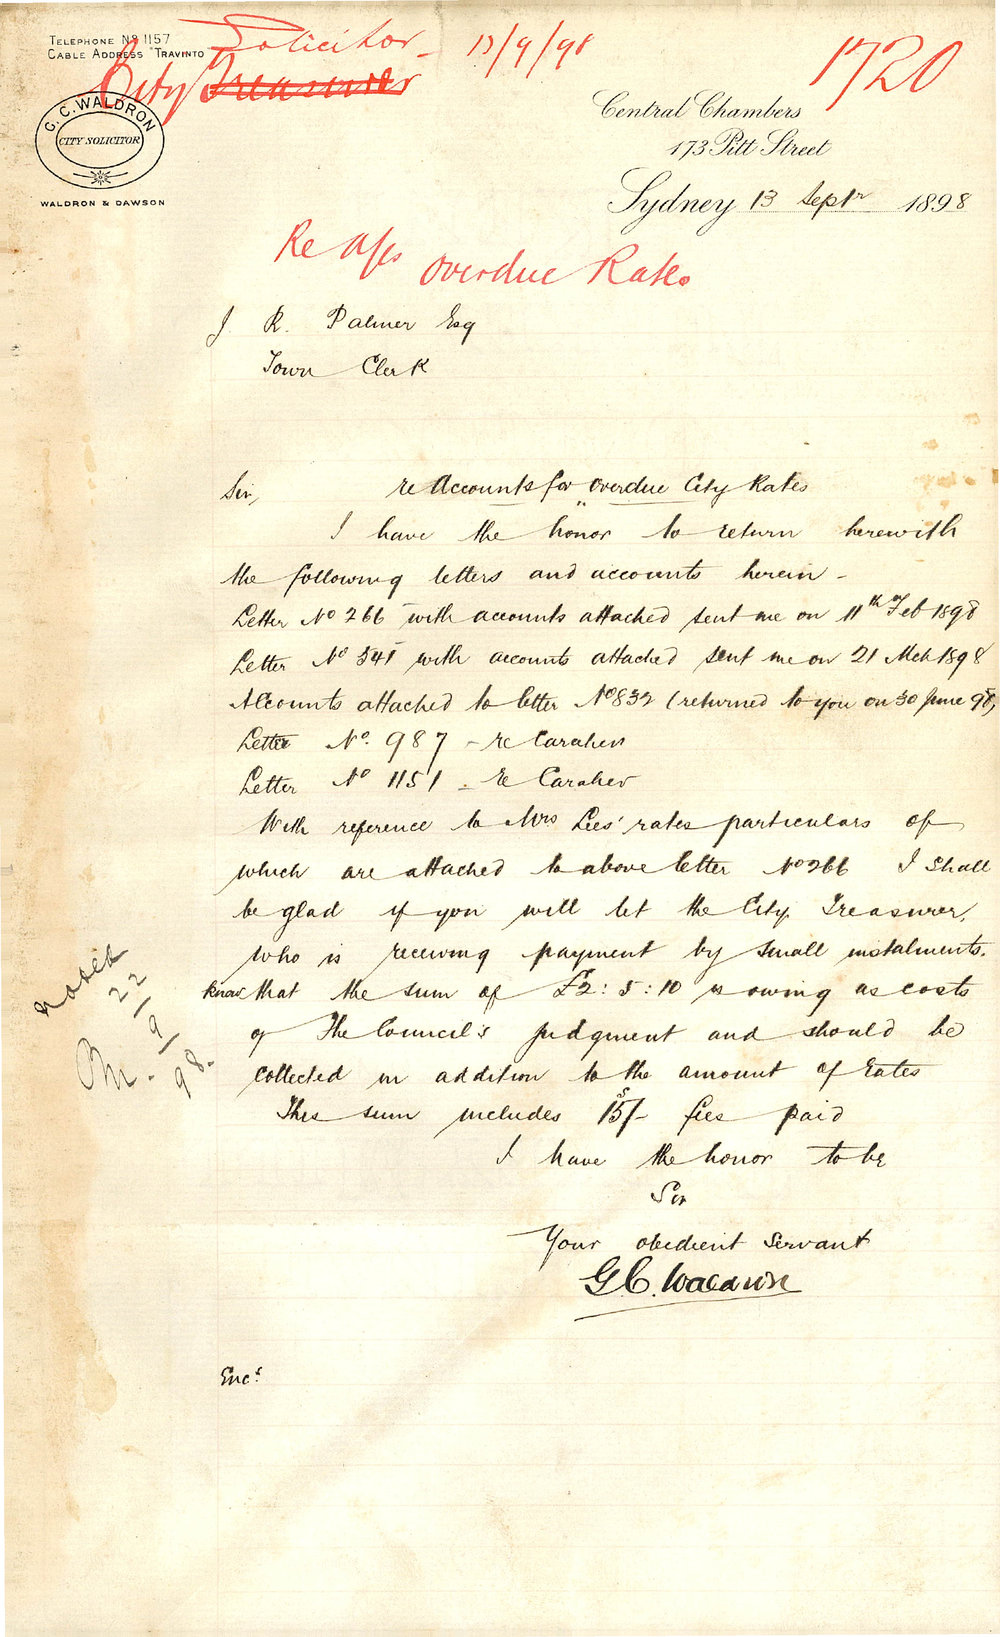 TELEPHONE No 1157
CABLE ADDRESS "TRAVINTO"
Solicitor
13/9/98
1720
City Treasurer
G. C. WALDRON
CITY SOLICITOR
WALDRON & DAWSON
Central Chambers
173 Pitt Street
Sydney 13 Septr 1898
Re a/cs overdue Rates
J. R. Palmer Esq
Town Clerk
Sir,
re Accounts for overdue City Rates
I have the honor to return herewith
the following letters and accounts herein -
Letter No 266 with accounts attached sent me on 11th Feb 1898
Letter No 541 with accounts attached sent me on 21 Mch 1898
Accounts attached to letter No 832 (returned to you on 30 June 98)
Letter No. 987 - re Caraher
Letter No 1151 - re Caraher
With reference to Mrs Lees' rates particulars of
which are attached to above letter No 266 I shall
be glad if you will let the City Treasurer,
who is receiving payment by small instalments.
know that the sum of £2:5:10 is owing as costs
of The Council's judgment and should be
collected in addition to the amount of rates
This sum includes 15s/- fees paid
I have the honor to be
Sir
Your obedient Servant
G.C. Waldron
Encs
noted
22/9/98.